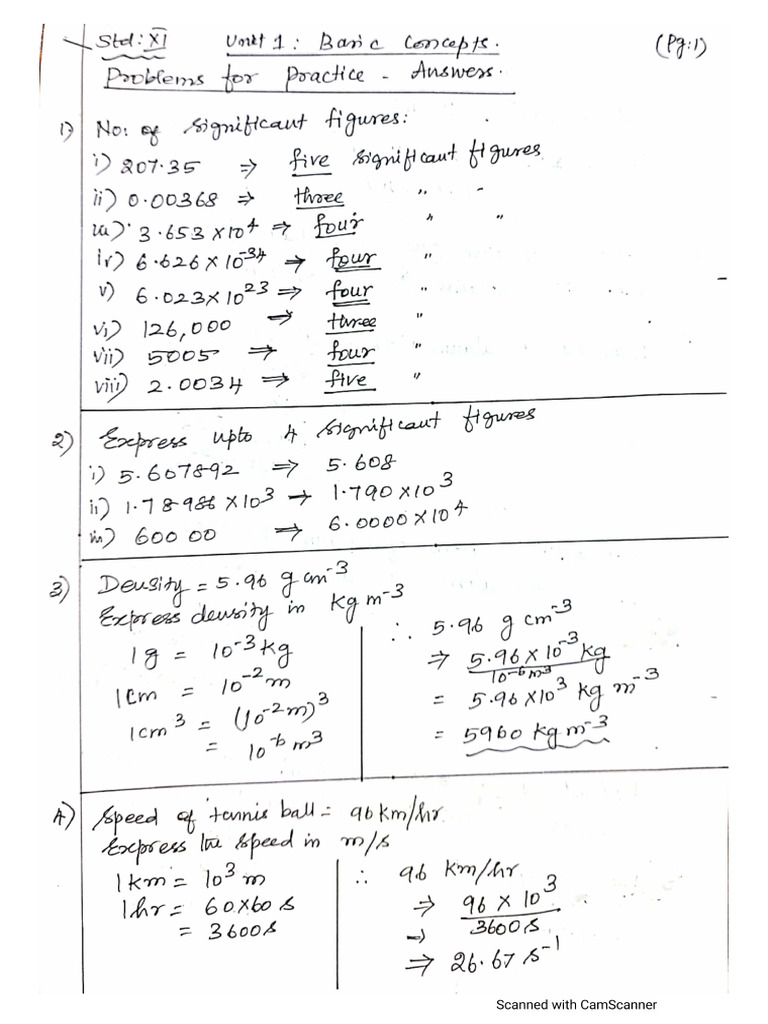 Std: XI Unit 1: Basic Concepts. (Pg:1)
Problems for Practice - Answers.
1) No: of significant figures:
i) 207.35 ⇒ five significant figures
ii) 0.00368 ⇒ three " -
iii) 3.653 × 10⁴ ⇒ four " "
iv) 6.626 × 10⁻³⁴ → four "
v) 6.023 × 10²³ ⇒ four "
vi) 126,000 ⇒ three "
vii) 5005 ⇒ four "
viii) 2.0034 ⇒ five "
2) Express upto 4 significant figures
i) 5.607892 ⇒ 5.608
ii) 1.78986 × 10³ → 1.790 × 10³
iii) 60000 ⇒ 6.0000 × 10⁴
3) Density = 5.96 g cm⁻³
Express density in Kg m⁻³
1g = 10⁻³ kg
1cm = 10⁻² m
1cm³ = (10⁻² m)³
= 10⁻⁶ m³
∴ 5.96 g cm⁻³
⇒ 5.96 × 10⁻³ kg
10⁻⁶ m³
= 5.96 × 10³ kg m⁻³
= 5960 kg m⁻³
4) Speed of tennis ball = 96 km/hr
Express the speed in m/s
1km = 10³ m
1hr = 60×60 s
= 3600s
∴ 96 km/hr
⇒ 96 × 10³
→ 3600 s
⇒ 26.67 s⁻¹
Scanned with CamScanner